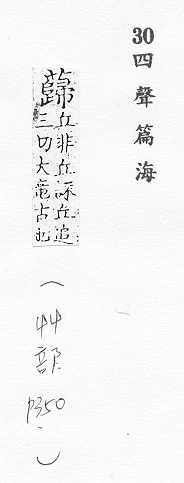 30 四聲篇海
蘬 丘非丘誄丘追
三切大龍古也
(艸部 p350.)